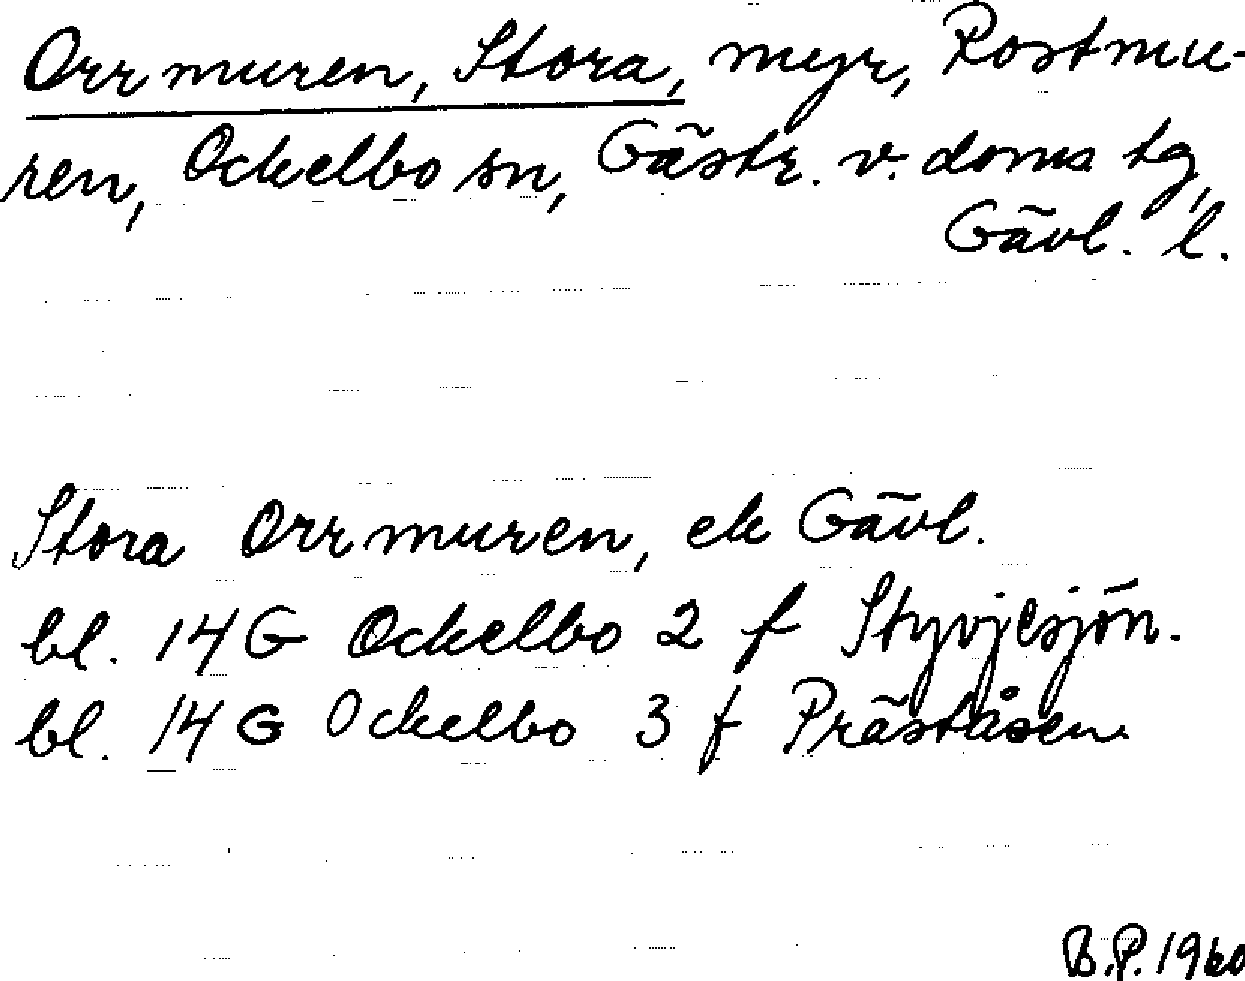 Orrmuren, Stora, myr, Rostmu-
ren, Ockelbo sn, Gästr. v. doms tg,
Gävl. l.
Stora Orrmuren, ek Gävl.
bl. 14G Ockelbo 2 f Styvjesjön.
bl. 14G Ockelbo 3 f Präståsen.
B.P. 1960